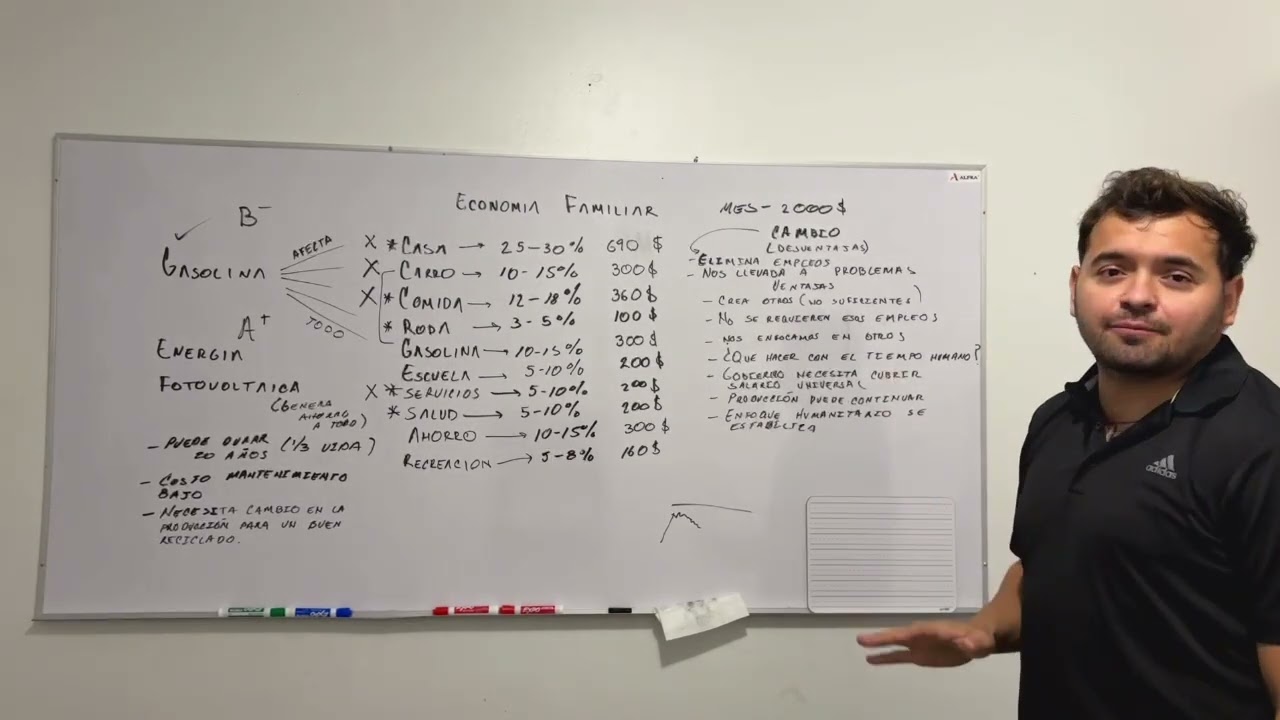 ECONOMIA FAMILIAR
MES - 2000$
B-
✓
GASOLINA
AFECTA
TODO
A+
ENERGIA
FOTOVOLTAICA
(GENERA
AHORRO
A TODO)
- PUEDE DURAR (1/3 VIDA)
20 AÑOS
- COSTO MANTENIMIENTO
BAJO
- NECESITA CAMBIO EN LA
PRODUCCIÓN PARA UN BUEN
RECICLADO.
X * CASA → 25-30% 690 $
X CARRO → 10-15% 300$
X * COMIDA → 12-18% 360$
* ROPA → 3-5% 100$
GASOLINA → 10-15% 300$
ESCUELA → 5-10% 200$
X * SERVICIOS → 5-10% 200$
* SALUD → 5-10% 200$
AHORRO → 10-15% 300$
RECREACION → 5-8% 160$
CAMBIO
(DESVENTAJAS)
- ELIMINA EMPLEOS
- NOS LLEVADA A PROBLEMAS
VENTAJAS
- CREA OTROS (NO SUFICIENTES)
- NO SE REQUIEREN ESOS EMPLEOS
- NOS ENFOCAMOS EN OTROS
- ¿QUE HACER CON EL TIEMPO HUMANO?
- GOBIERNO NECESITA CUBRIR
SALARIO UNIVERSAL
- PRODUCCIÓN PUEDE CONTINUAR
- ENFOQUE HUMANITARIO SE
ALPHA
adidas
EXPO